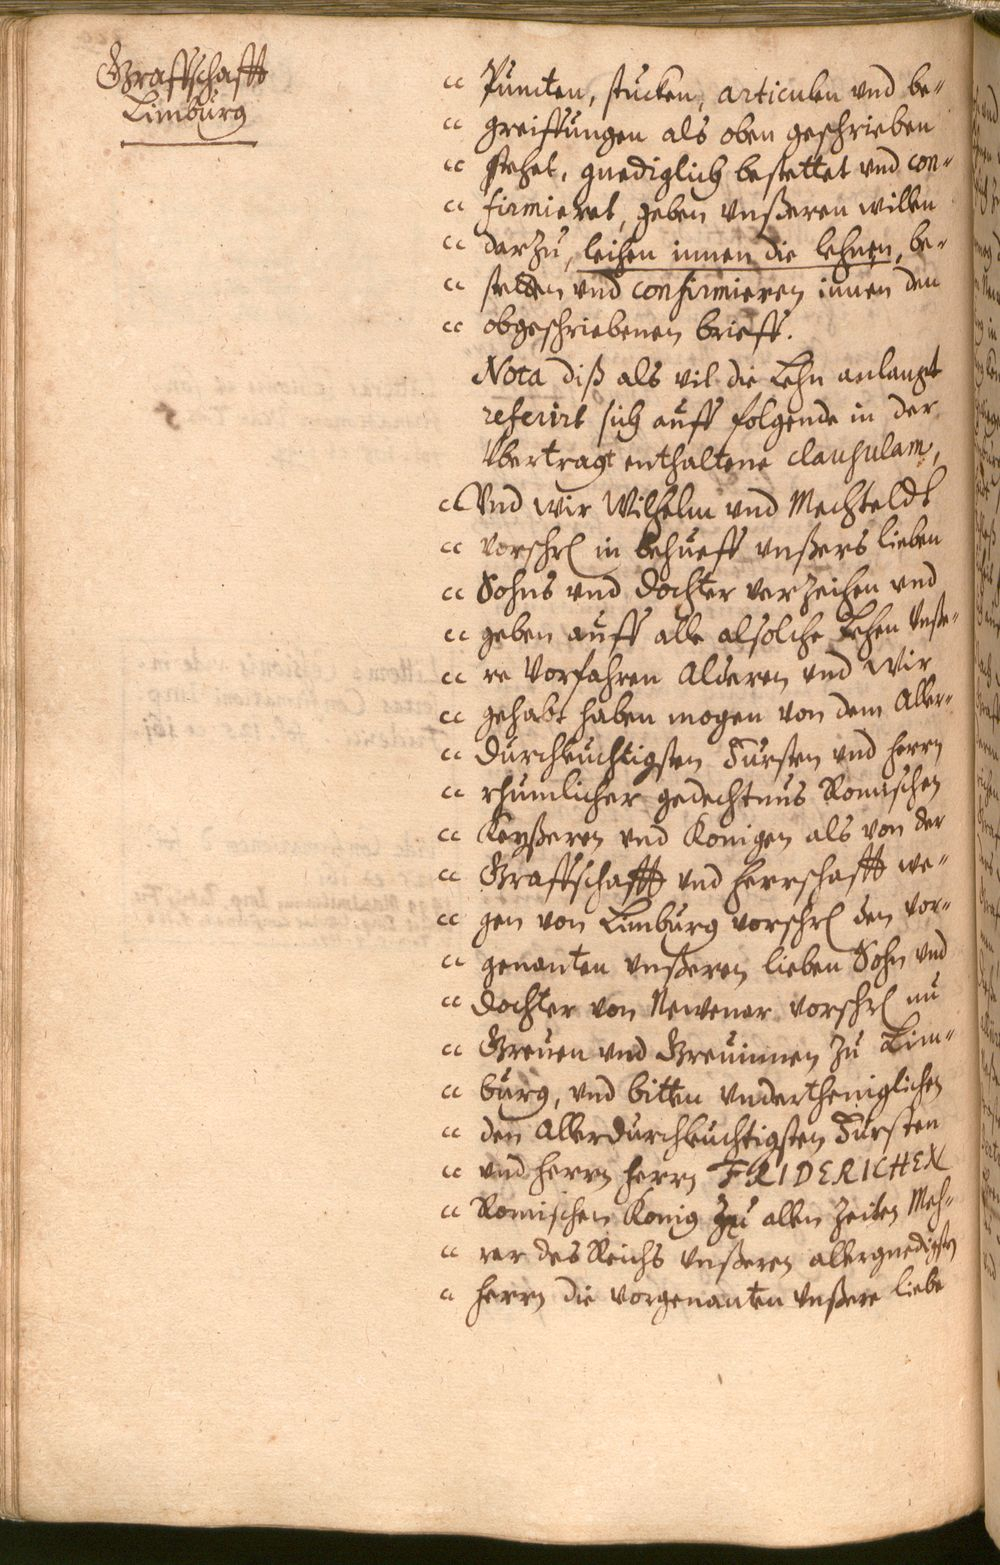 Graffschafft
Limburg
" Puncten, stucken, articulen vnd be-
" greiffungen als oben geschrieben
" stehet, gnediglich bestettet vnd con-
" firmieret, geben vnßeren willen
" darzu, leihen innen die lehnen, be-
" stetten vnd confirmieren innen den
" obgeschriebenen brieff.
Nota diß als vil die Lehn anlangt
referirt sich auff folgende in der
Vbertragt enthaltene clausulam,
" Vnd wir Wilhelm vnd Mechteldt
" vorschrl in behueff vnßers lieben
" Sohns vnd dochter verzeihen vnd
" geben auff alle alsolche Lehen vnße-
" re Vorfahren Alderen vnd wir
" gehabt haben mogen von dem Aller-
" Durchleuchtigsten Fursten vnd herrn
" rhumlicher gedechtnus Romischen
" Keyßeren vnd Konigen als von der
" Graffschafft vnd herrschafft we-
" gen von Limburg vorschrl den vor-
" genanten vnßeren lieben Sohn vnd
" dochter von Newenar vorschrl nu
" Greuen vnd Greuinnen zu Lim-
" burg, vnd bitten vndertheniglichen
" den Allerdurchleuchtigsten Fursten
" vnd herrn herrn FRIDERICHEN
" Romischen Konig zu allen Zeiten Meh-
" rer des Reichs vnßeren allergnedigsten
" herrn die vorgenanten vnßere liebe